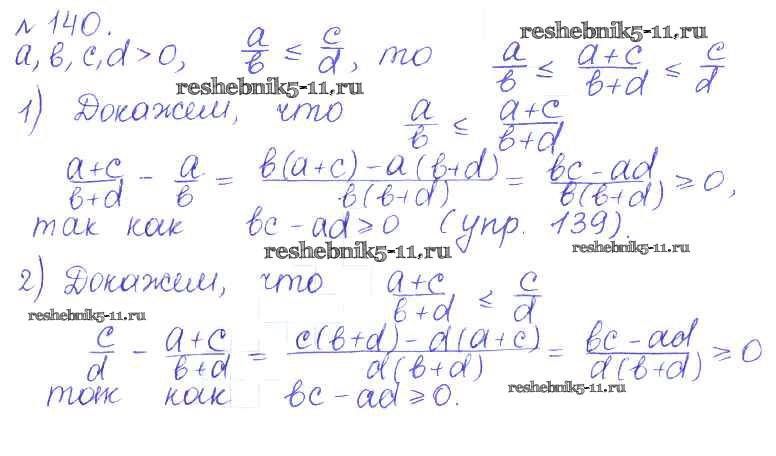 № 140.
reshebnik5-11.ru
a, b, c, d > 0, a/b ≤ c/d, то a/b ≤ (a+c)/(b+d) ≤ c/d
reshebnik5-11.ru
1) Докажем, что a/b ≤ (a+c)/(b+d)
(a+c)/(b+d) - a/b = (b(a+c) - a(b+d))/(b(b+d)) = (bc - ad)/(b(b+d)) ≥ 0,
так как bc - ad ≥ 0 (упр. 139).
reshebnik5-11.ru
reshebnik5-11.ru
2) Докажем, что (a+c)/(b+d) ≤ c/d
reshebnik5-11.ru
c/d - (a+c)/(b+d) = (c(b+d) - d(a+c))/(d(b+d)) = (bc - ad)/(d(b+d)) ≥ 0
reshebnik5-11.ru
так как bc - ad ≥ 0.